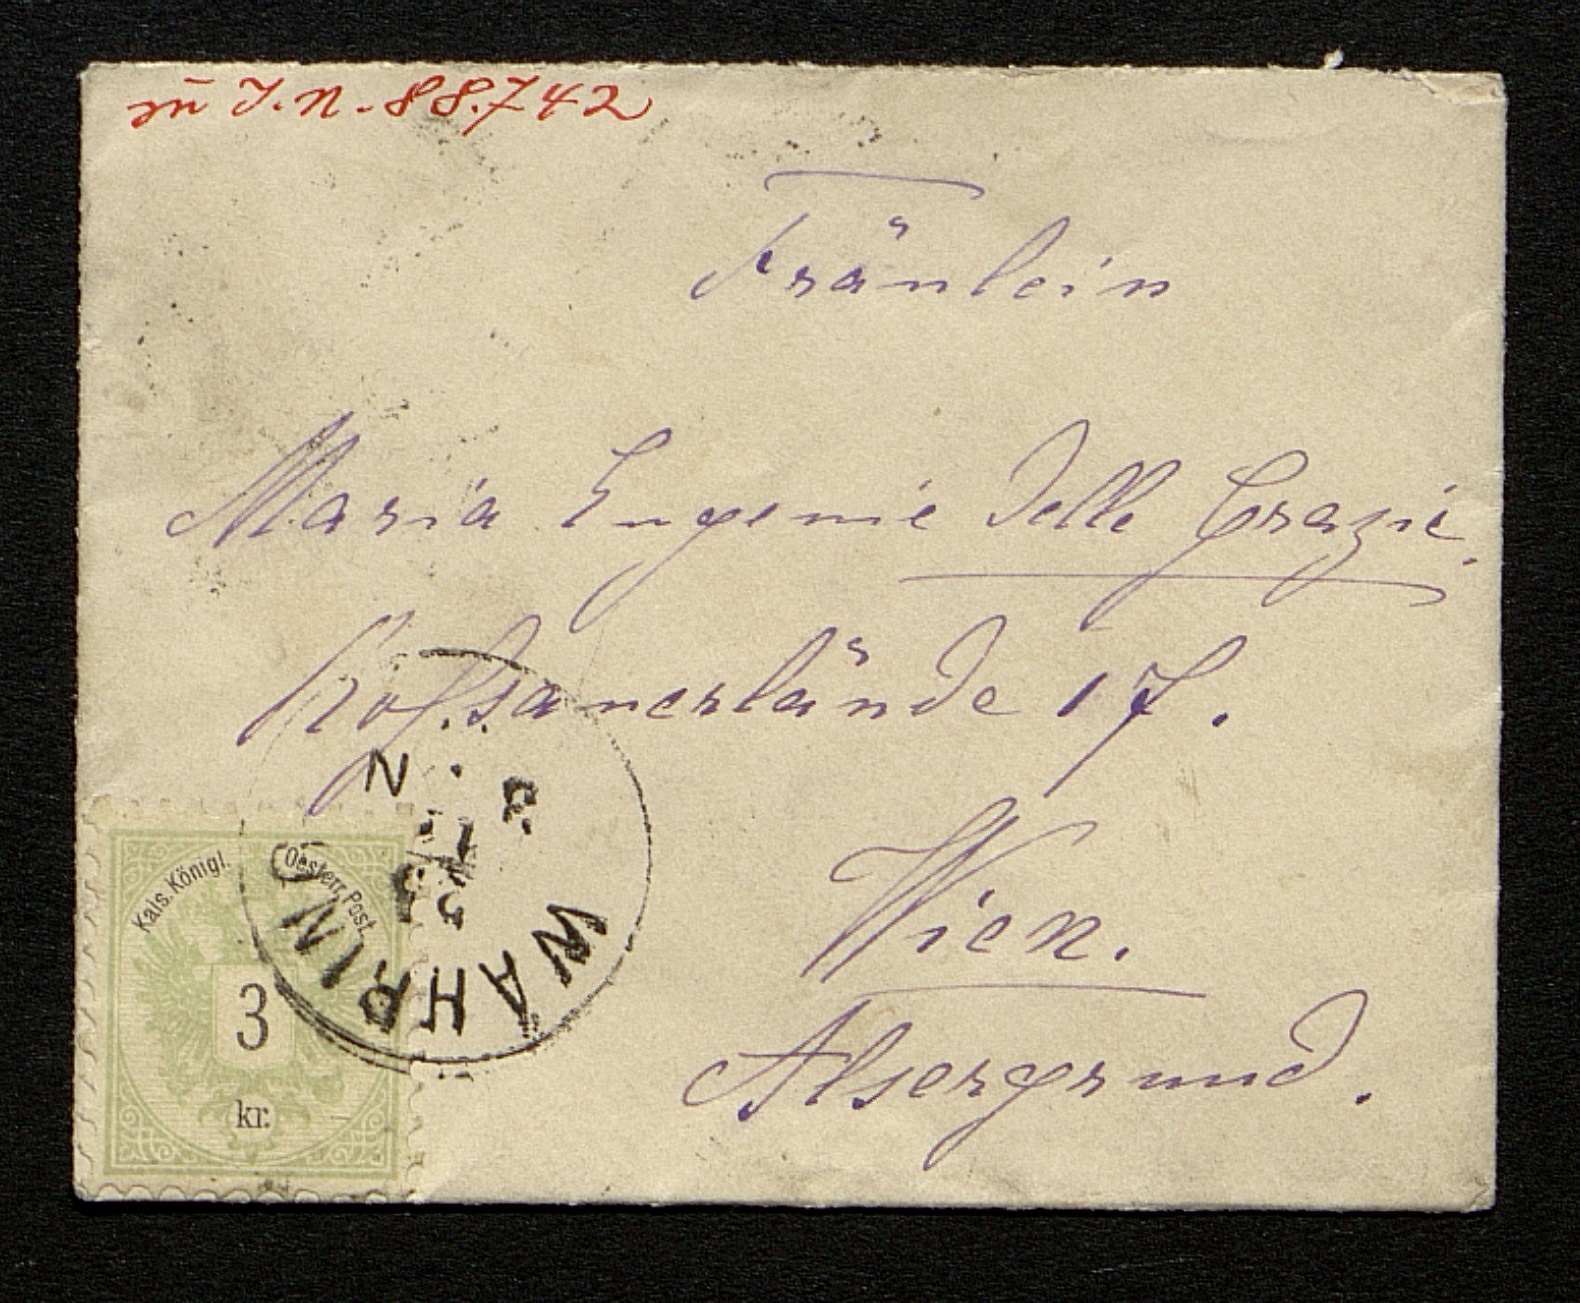 zu I.N. 88.742
Fräulein
Maria Eugenie delle Grazie.
Roßauerlände 17.
Wien.
Alsergrund.
Kais. Königl. Oesterr. Post.
3
kr.
WÄHRING